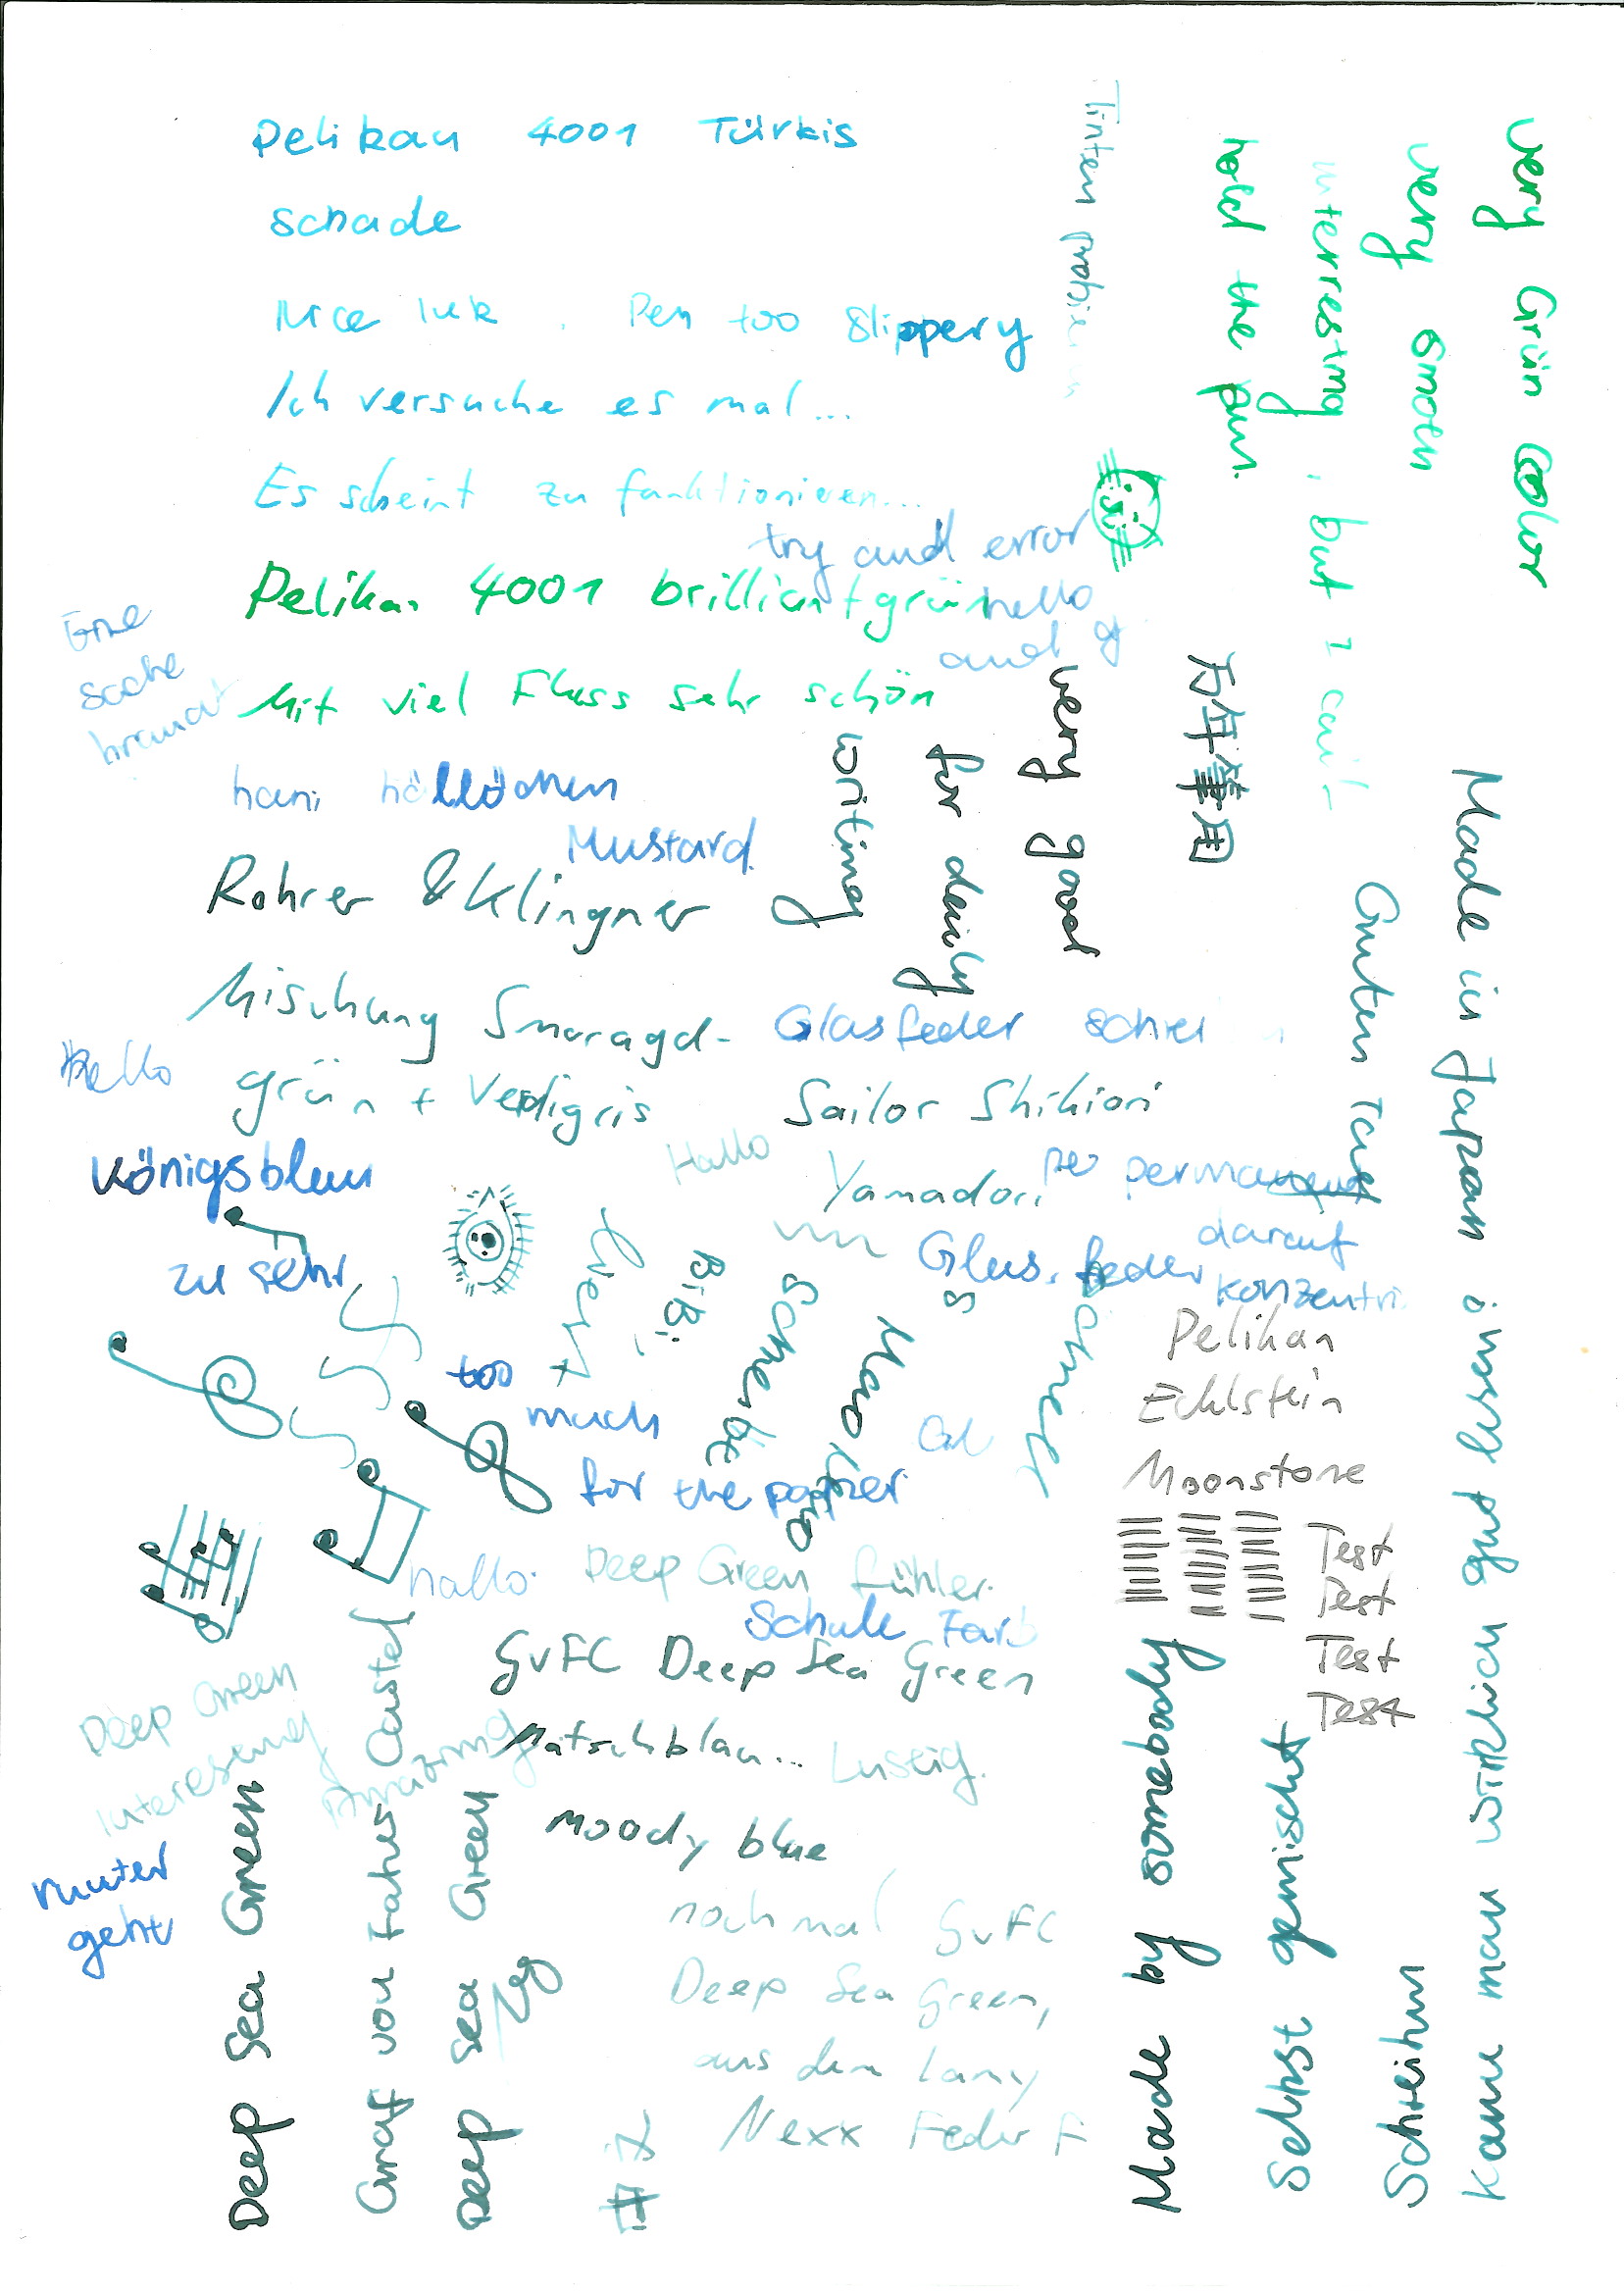 Pelikan 4001 Türkis
schade
Nice Ink. Pen too slippery
Ich versuche es mal...
Es scheint zu funktionieren...
try and error
Pelikan 4001 brilliantgrün
hello
and
Eine
Sache
braucht
Mit viel Fluss sehr schön
hallöchen
Mustard.
Rohrer & Klingner
Mischung Smaragd-
grün + Verdigris
Glasfeder
Sailor Shikiori
Yamadori
hello
Hallo
Königsblau
zu sehr
permanent
darauf
Glas. feder
konzentri
too
much
for the paper
Pelikan
Edelstein
Moonstone
Test
Test
Test
Test
hallo.
Deep Green Fühler.
Schule Farb
GvFC Deep Sea Green
Matschblau... Lustig.
Moody blue
Deep Green
Amazing
runter
geht
nochmal GvFC
Deep Sea Green,
aus dem Lamy
Nexx Feder F
Deep Sea Green
Graf von Faber Castell
Deep Sea Green
Tinten probieren
hold the pen.
interresting, but I can't
very smooth
very Grün Color
very good
for daily
writing
万年筆用
Guten Tag
Made in Japan
Made by somebody
Selbst gemischt
Schreiben
Kann man wirklich gut lesen